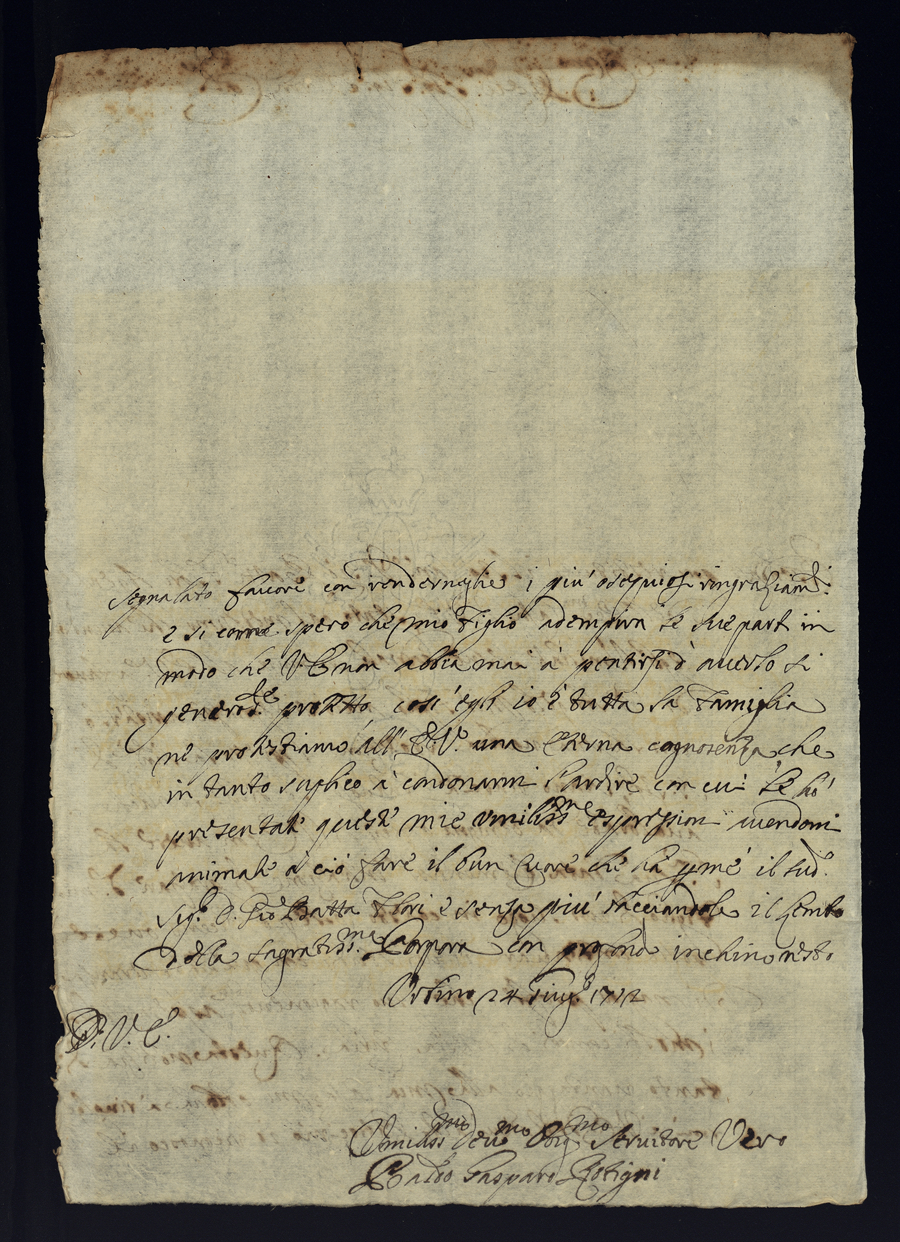 segnalato favore con rendernglie i più ossequiosi ringraziam.ti
e si come spero che mio Figlio adempirà le sue parti in
modo che V E non abbia mai à pentirsi d'auerlo si
generos.te protetto così egli io è tutta la Famiglia
ne protestiamo all' E. V. una eterna cognoscenza che
in tanto suplico à condonarmi l'ardire con cui le hò
presentate queste mie umiliss.me espressioni auendomi
animato à ciò fare il bun Cuore che hà p me il sud.o
Sig.r D. Gio Batta Flori e senza più bacciandole il Lembo
della Sagratiss.ma Porpora con profondo inchino resto
Urbino 24 Giug.o 1712
D. V. E.
Umiliss.mo Deu.mo Obg.mo Seruitore Vero
Baldo Gasparo